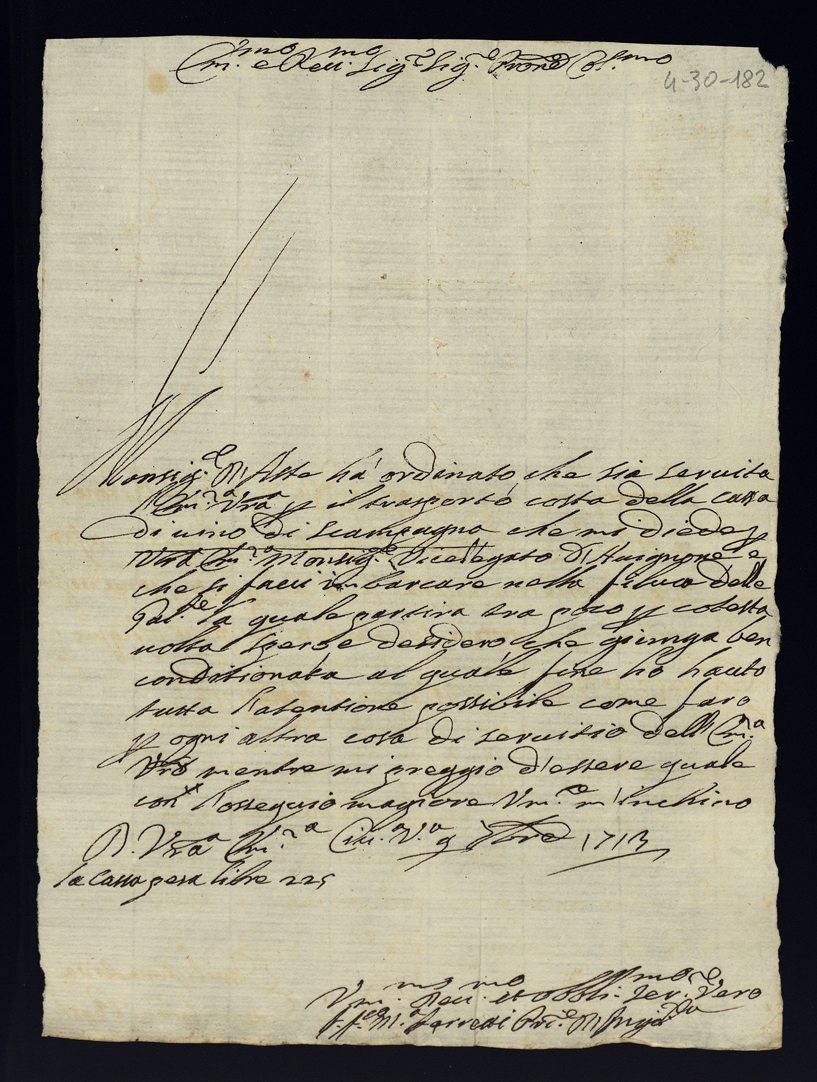 Em.mo e Reu.mo Sig.re Sig.re Prone Col.mo
4-30-182
Monsig.re D'Aste hà ordinato che sia seruita
Em.za Vra p il trasporto costa della cassa
di uino di Scampagna che mi diede p
Vra Em.za Monsig.re Vicelegato D'Auignone e
che si facci imbarcare nella filuca delle
Gal.re la quale partira tra poco p cotesta
uolta spero e desidero che giunga ben
conditionata al quale fine ho hauto
tutta l'atentione possibile come faro
p ogni altra cosa di seruitio dell Em.za
Vra mentre mi preggio d'essere quale
con l'ossequio magiore Vm.e m'inchino
D. Vra Em.za Ciu.a V.a 9 1713
la cassa pesa libre 225
Vm. Deu.mo et obbli.mo Ser.re Vero